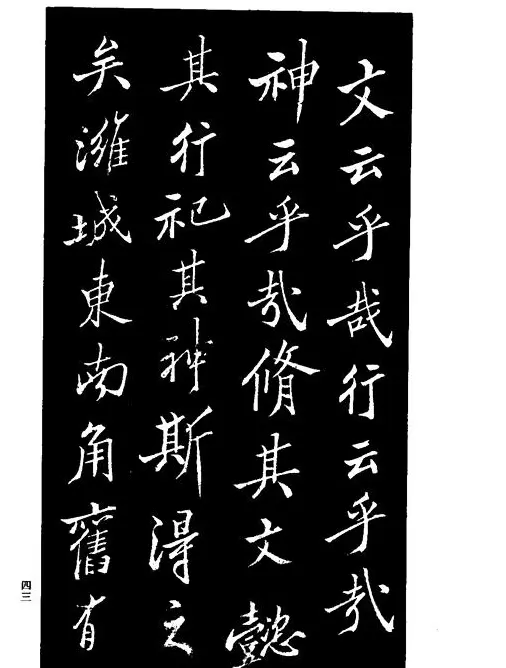 文云乎哉行云乎哉
神云乎哉脩其文懿
其行祀其神斯得之
矣潍城東南角舊有
四三